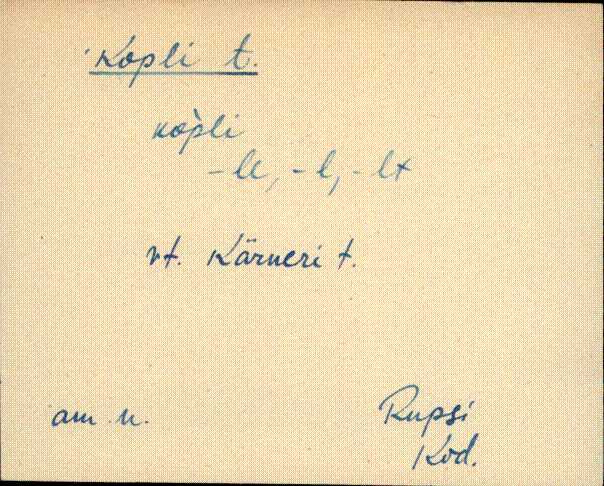 Kopli t.
kop̀li
-le, -l, -lt
vt. Kärneri t.
am. n.
Rupsi
Kod.